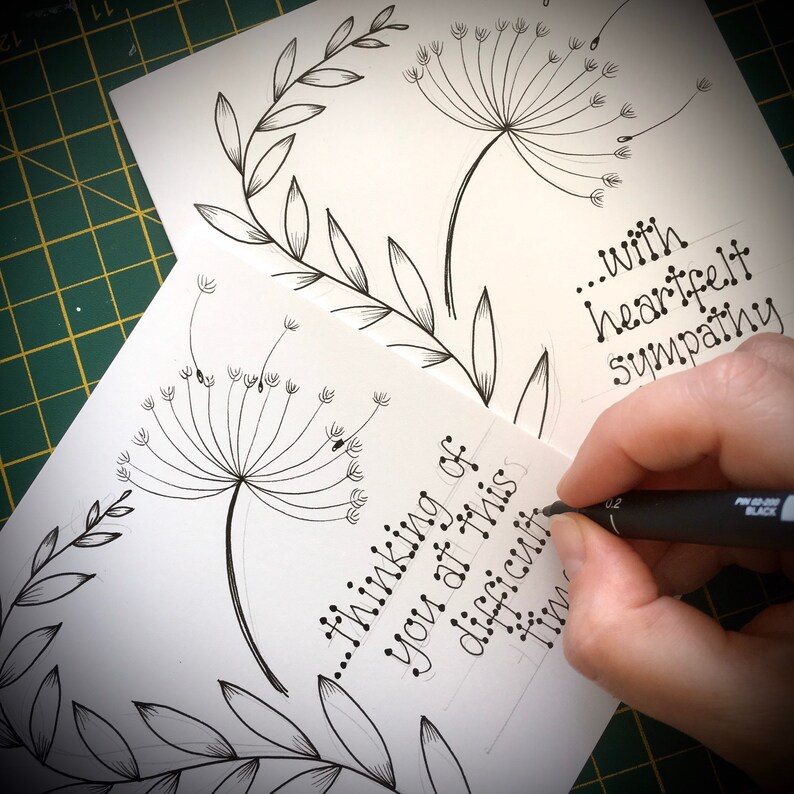 ...with
heartfelt
sympathy
...thinking of
you at this
difficult
time
0.2
PIN 02-200
BLACK
11
12